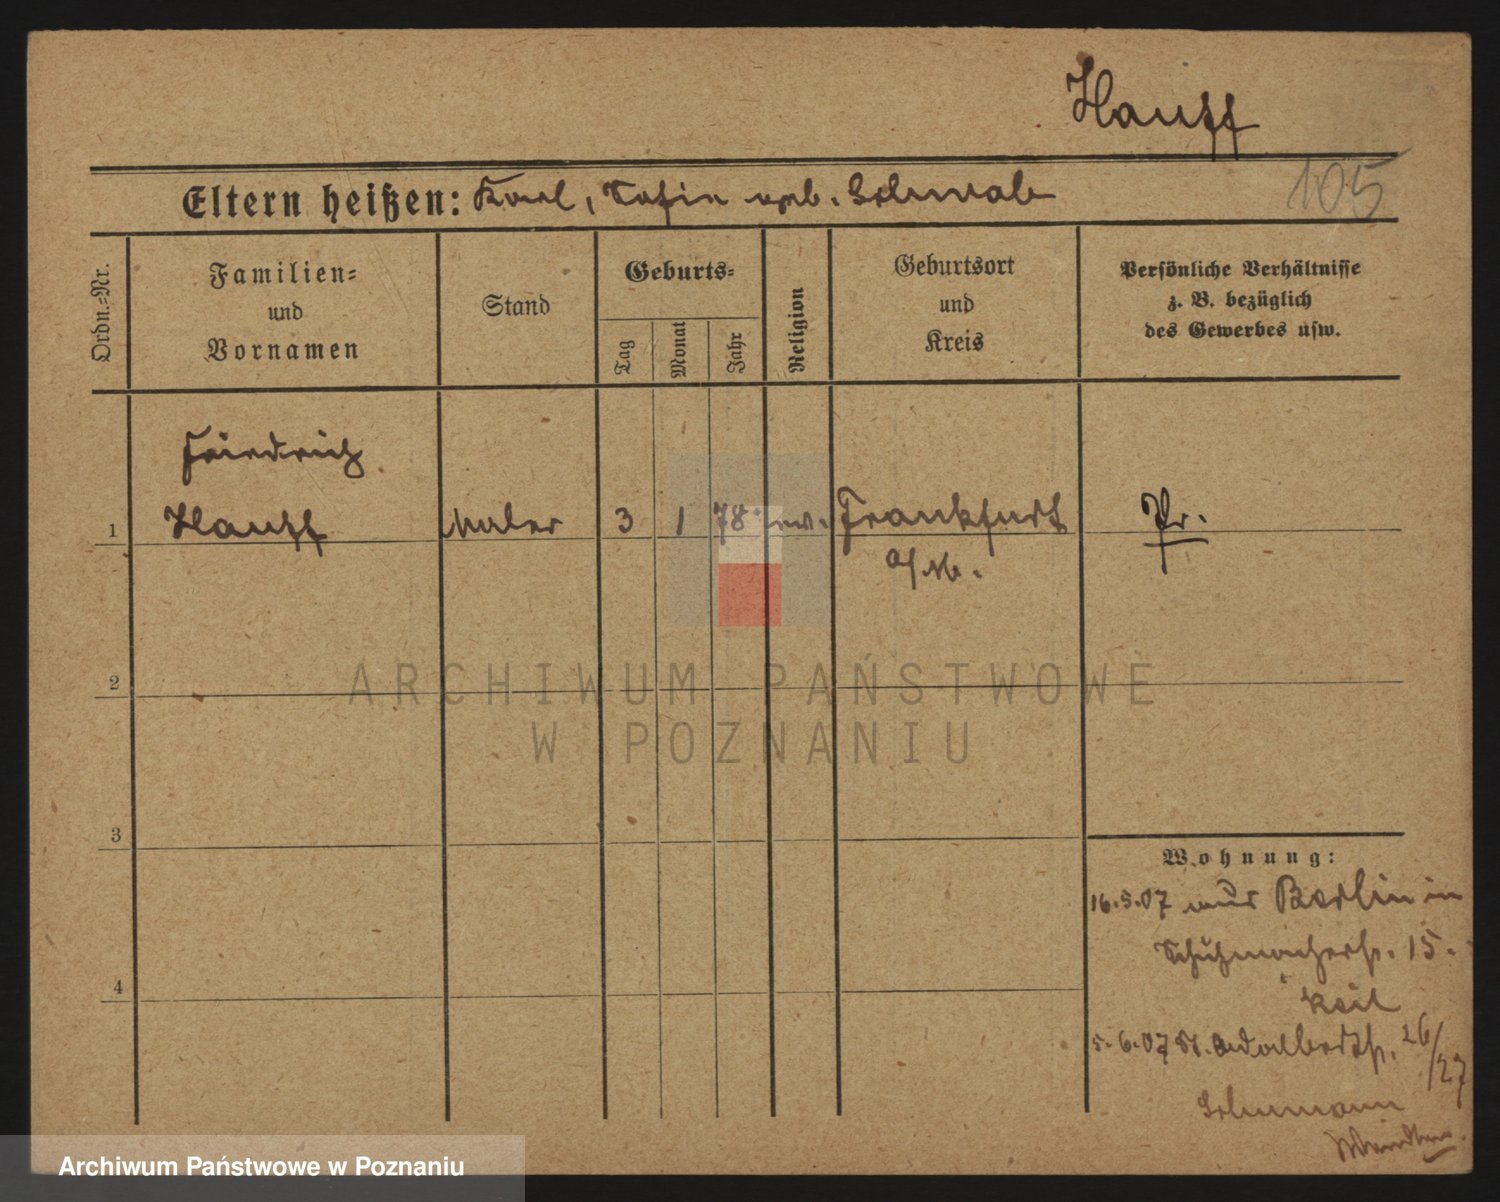 Hauff
105
Eltern heißen: Karl, Sofie geb. Schwab
Ordn.=Nr.
Familien=
und
Vornamen
Stand
Geburts=
Tag
Monat
Jahr
Religion
Geburtsort
und
Kreis
Persönliche Verhältnisse
z. B. bezüglich
des Gewerbes usw.
Friedrich
1 Hauff Maler 3 1 78. ev. Frankfurt Pr.
a/M.
2
3
4
Wohnung:
16.5.07 aus Berlin in
Schuhmacherstr. 15.
Keil
5.6.07 St. Adalbertstr. 26/27
Schumann
ARCHIWUM PAŃSTWOWE
W POZNANIU
Archiwum Państwowe w Poznaniu